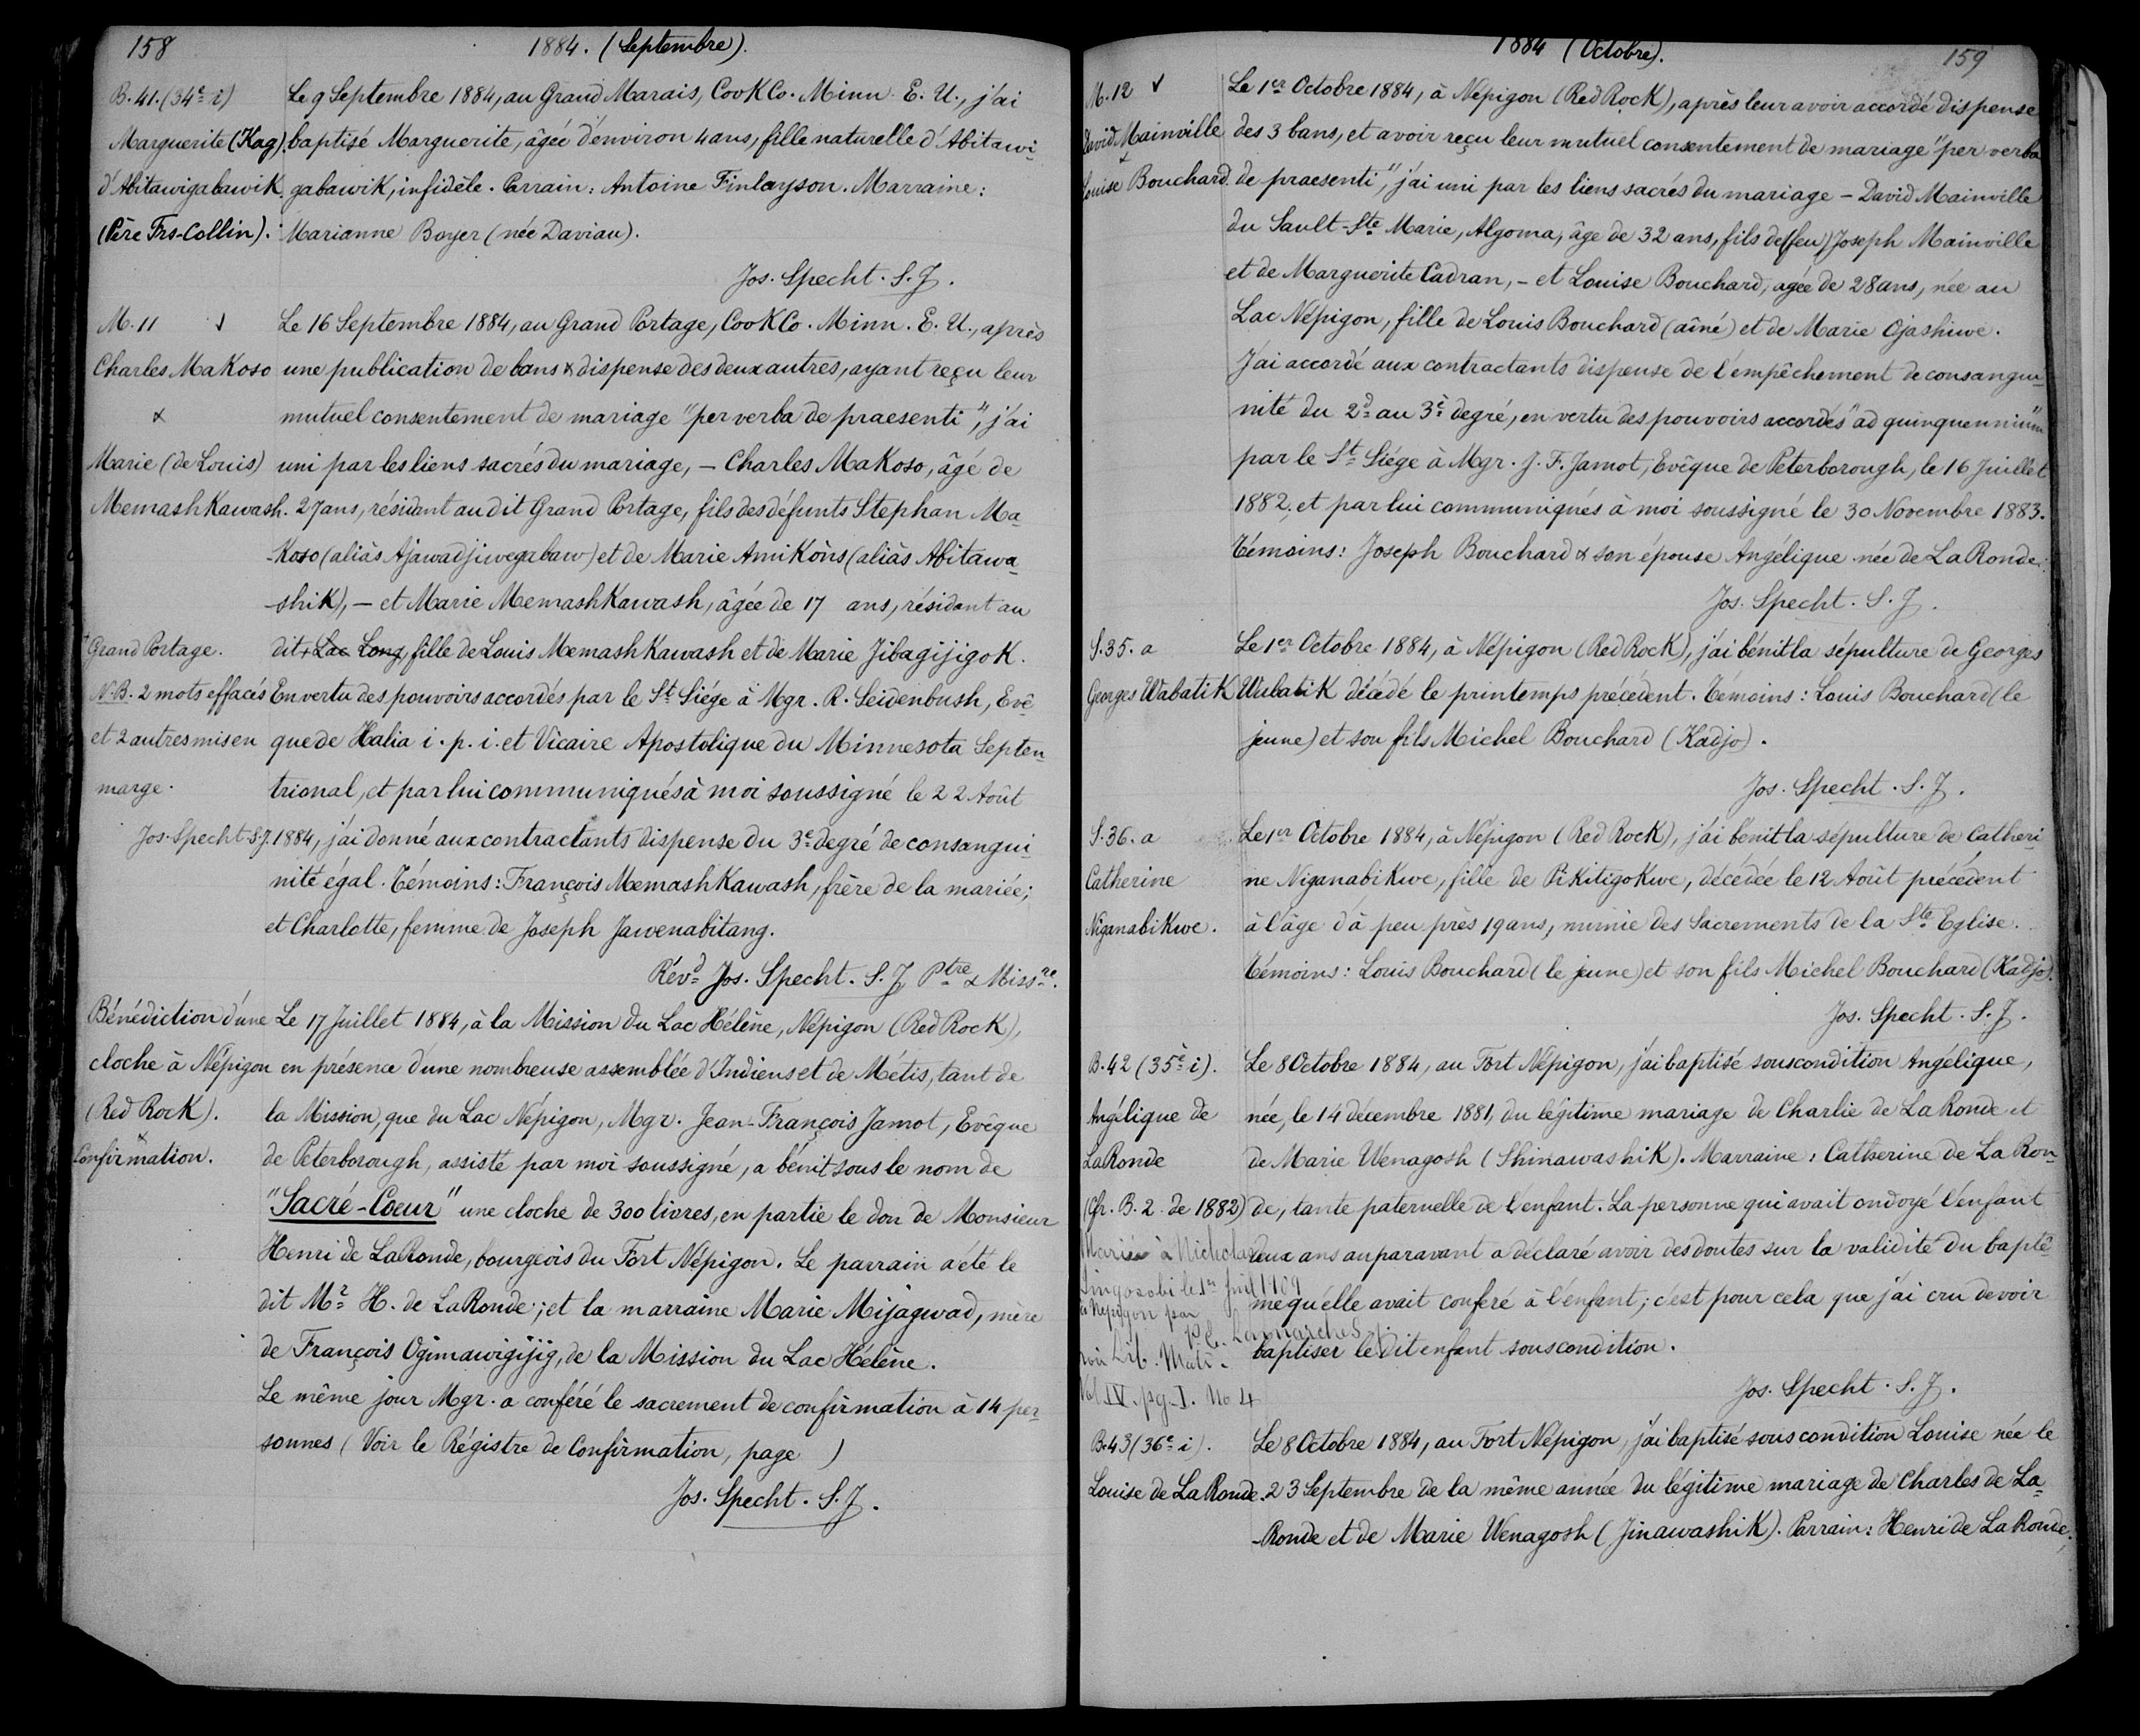 158
1884. (Septembre).
B. 41. (34e i)
Marguerite (Kag).
d'Abitawigabawik.
(Père Frs-Collin).
Le 9 Septembre 1884, au Grand Marais, Cook Co. Minn. E. U., j'ai
baptisé Marguerite, âgée d'environ 4 ans, fille naturelle d'Abitawi-
gabawik, infidèle. Parrain: Antoine Finlayson. Marraine:
Marianne Boyer (née Daviau).
Jos. Specht. S. J.
M. 11 √
Charles Makoso
&
Marie (de Louis)
Memashkawash.
Le 16 Septembre 1884, au Grand Portage, Cook Co. Minn. E. U., après
une publication de bans & dispense des deux autres, ayant reçu leur
mutuel consentement de mariage "per verba de praesenti", j'ai
uni par les liens sacrés du mariage, — Charles Makoso, âgé de
27 ans, résidant au dit Grand Portage, fils des défunts Stephan Ma-
-koso (aliàs Ajawadjiwegabaw) et de Marie Amikons (aliàs Abitawa-
-shik), — et Marie Memashkawash, âgée de 17 ans, résidant au
dit + Lac Long, fille de Louis Memashkawash et de Marie Jibagijigok.
En vertu des pouvoirs accordés par le St Siége à Mgr. R. Seidenbush, Evê-
que de Halia i. p. i. et Vicaire Apostolique du Minnesota Septen-
trional, et par lui communiqués à moi soussigné le 22 Août
1884, j'ai donné aux contractants dispense du 3e degré de consangui-
nité égal. Témoins: François Memashkawash, frère de la mariée;
et Charlotte, femme de Joseph Jawenabitang.
Révd Jos. Specht. S. J. Ptre & Missre.
+ Grand Portage.
N.B. 2 mots effacés
et 2 autres mis en
marge.
Jos. Specht S.J.
Bénédiction d'une
cloche à Népigon
(Red Rock).
&
Confirmation.
Le 17 Juillet 1884, à la Mission du Lac Hélène, Népigon (Red Rock),
en présence d'une nombreuse assemblée d'Indiens et de Métis, tant de
la Mission, que du Lac Népigon, Mgr. Jean-François Jamot, Evêque
de Peterborough, assisté par moi soussigné, a bénit sous le nom de
"Sacré-Coeur" une cloche de 300 livres, en partie le don de Monsieur
Henri de LaRonde, bourgeois du Fort Népigon. Le parrain a été le
dit Mr H. de LaRonde; et la marraine Marie Mijagwad, mère
de François Ogimawigijig, de la Mission du Lac Hélène.
Le même jour Mgr. a conféré le sacrement de confirmation à 14 per-
sonnes (Voir le Régistre de Confirmation, page )
Jos. Specht. S. J.
1884 (Octobre).
159
M. 12 √
David Mainville
&
Louise Bouchard.
Le 1er Octobre 1884, à Népigon (Red Rock), après leur avoir accordé dispense
des 3 bans, et avoir reçu leur mutuel consentement de mariage "per verba
de praesenti", j'ai uni par les liens sacrés du mariage — David Mainville
du Sault-Ste Marie, Algoma, âge de 32 ans, fils de (feu) Joseph Mainville
et de Marguerite Cadran, — et Louise Bouchard, agée de 28 ans, née au
Lac Népigon, fille de Louis Bouchard (aîné) et de Marie Ojashiwe.
J'ai accordé aux contractants dispense de l'empêchement de consangui-
nité du 2d au 3e degré, en vertu des pouvoirs accordés "ad quinquennium"
par le St Siége à Mgr. J. F. Jamot, Evêque de Peterborough, le 16 Juillet
1882, et par lui communiqués à moi soussigné le 30 Novembre 1883.
Témoins: Joseph Bouchard & son épouse Angélique née de LaRonde.
Jos. Specht. S. J.
S. 35. a
Georges Wabatik
Le 1er Octobre 1884, à Népigon (Red Rock), j'ai bénit la sépulture de Georges
Wabatik décédé le printemps précédent. Témoins: Louis Bouchard (le
jeune) et son fils Michel Bouchard (Kadjo).
Jos. Specht. S. J.
S. 36. a
Catherine
Niganabikwe.
Le 1er Octobre 1884, à Népigon (Red Rock), j'ai bénit la sépulture de Catheri-
ne Niganabikwe, fille de Pikitigokwe, décédée le 12 Août précédent
à l'âge d'à peu près 19 ans, munie des Sacrements de la Ste Eglise.
Témoins: Louis Bouchard (le jeune) et son fils Michel Bouchard (Kadjo).
Jos. Specht. S. J.
B. 42 (35e i).
Angélique de
LaRonde
(Cfr. B. 2. de 1882)
Mariée à Nicholas
le 1er Juil 1909
à Nepigon par
P. C. Lamarche S.j.
voir Lib. Matr.
Vol IV. pg. I. No 4
Le 8 Octobre 1884, au Fort Népigon, j'ai baptisé sous condition Angélique,
née, le 14 décembre 1881, du légitime mariage de Charlie de La Ronde et
de Marie Wenagosh (Shinawashik). Marraine: Catherine de La Ron-
de, tante paternelle de l'enfant. La personne qui avait ondoyé l'enfant
deux ans auparavant a déclaré avoir des doutes sur la validité du baptê-
me qu'elle avait conferé à l'enfant; c'est pour cela que j'ai cru devoir
baptiser le dit enfant sous condition.
Jos. Specht. S. J.
B. 43 (36e i).
Louise de La Ronde.
Le 8 Octobre 1884, au Fort Népigon, j'ai baptisé sous condition Louise née le
23 Septembre de la même année du légitime mariage de Charles de La-
-Ronde et de Marie Wenagosh (Jinawashik). Parrain: Henri de La Ronde,